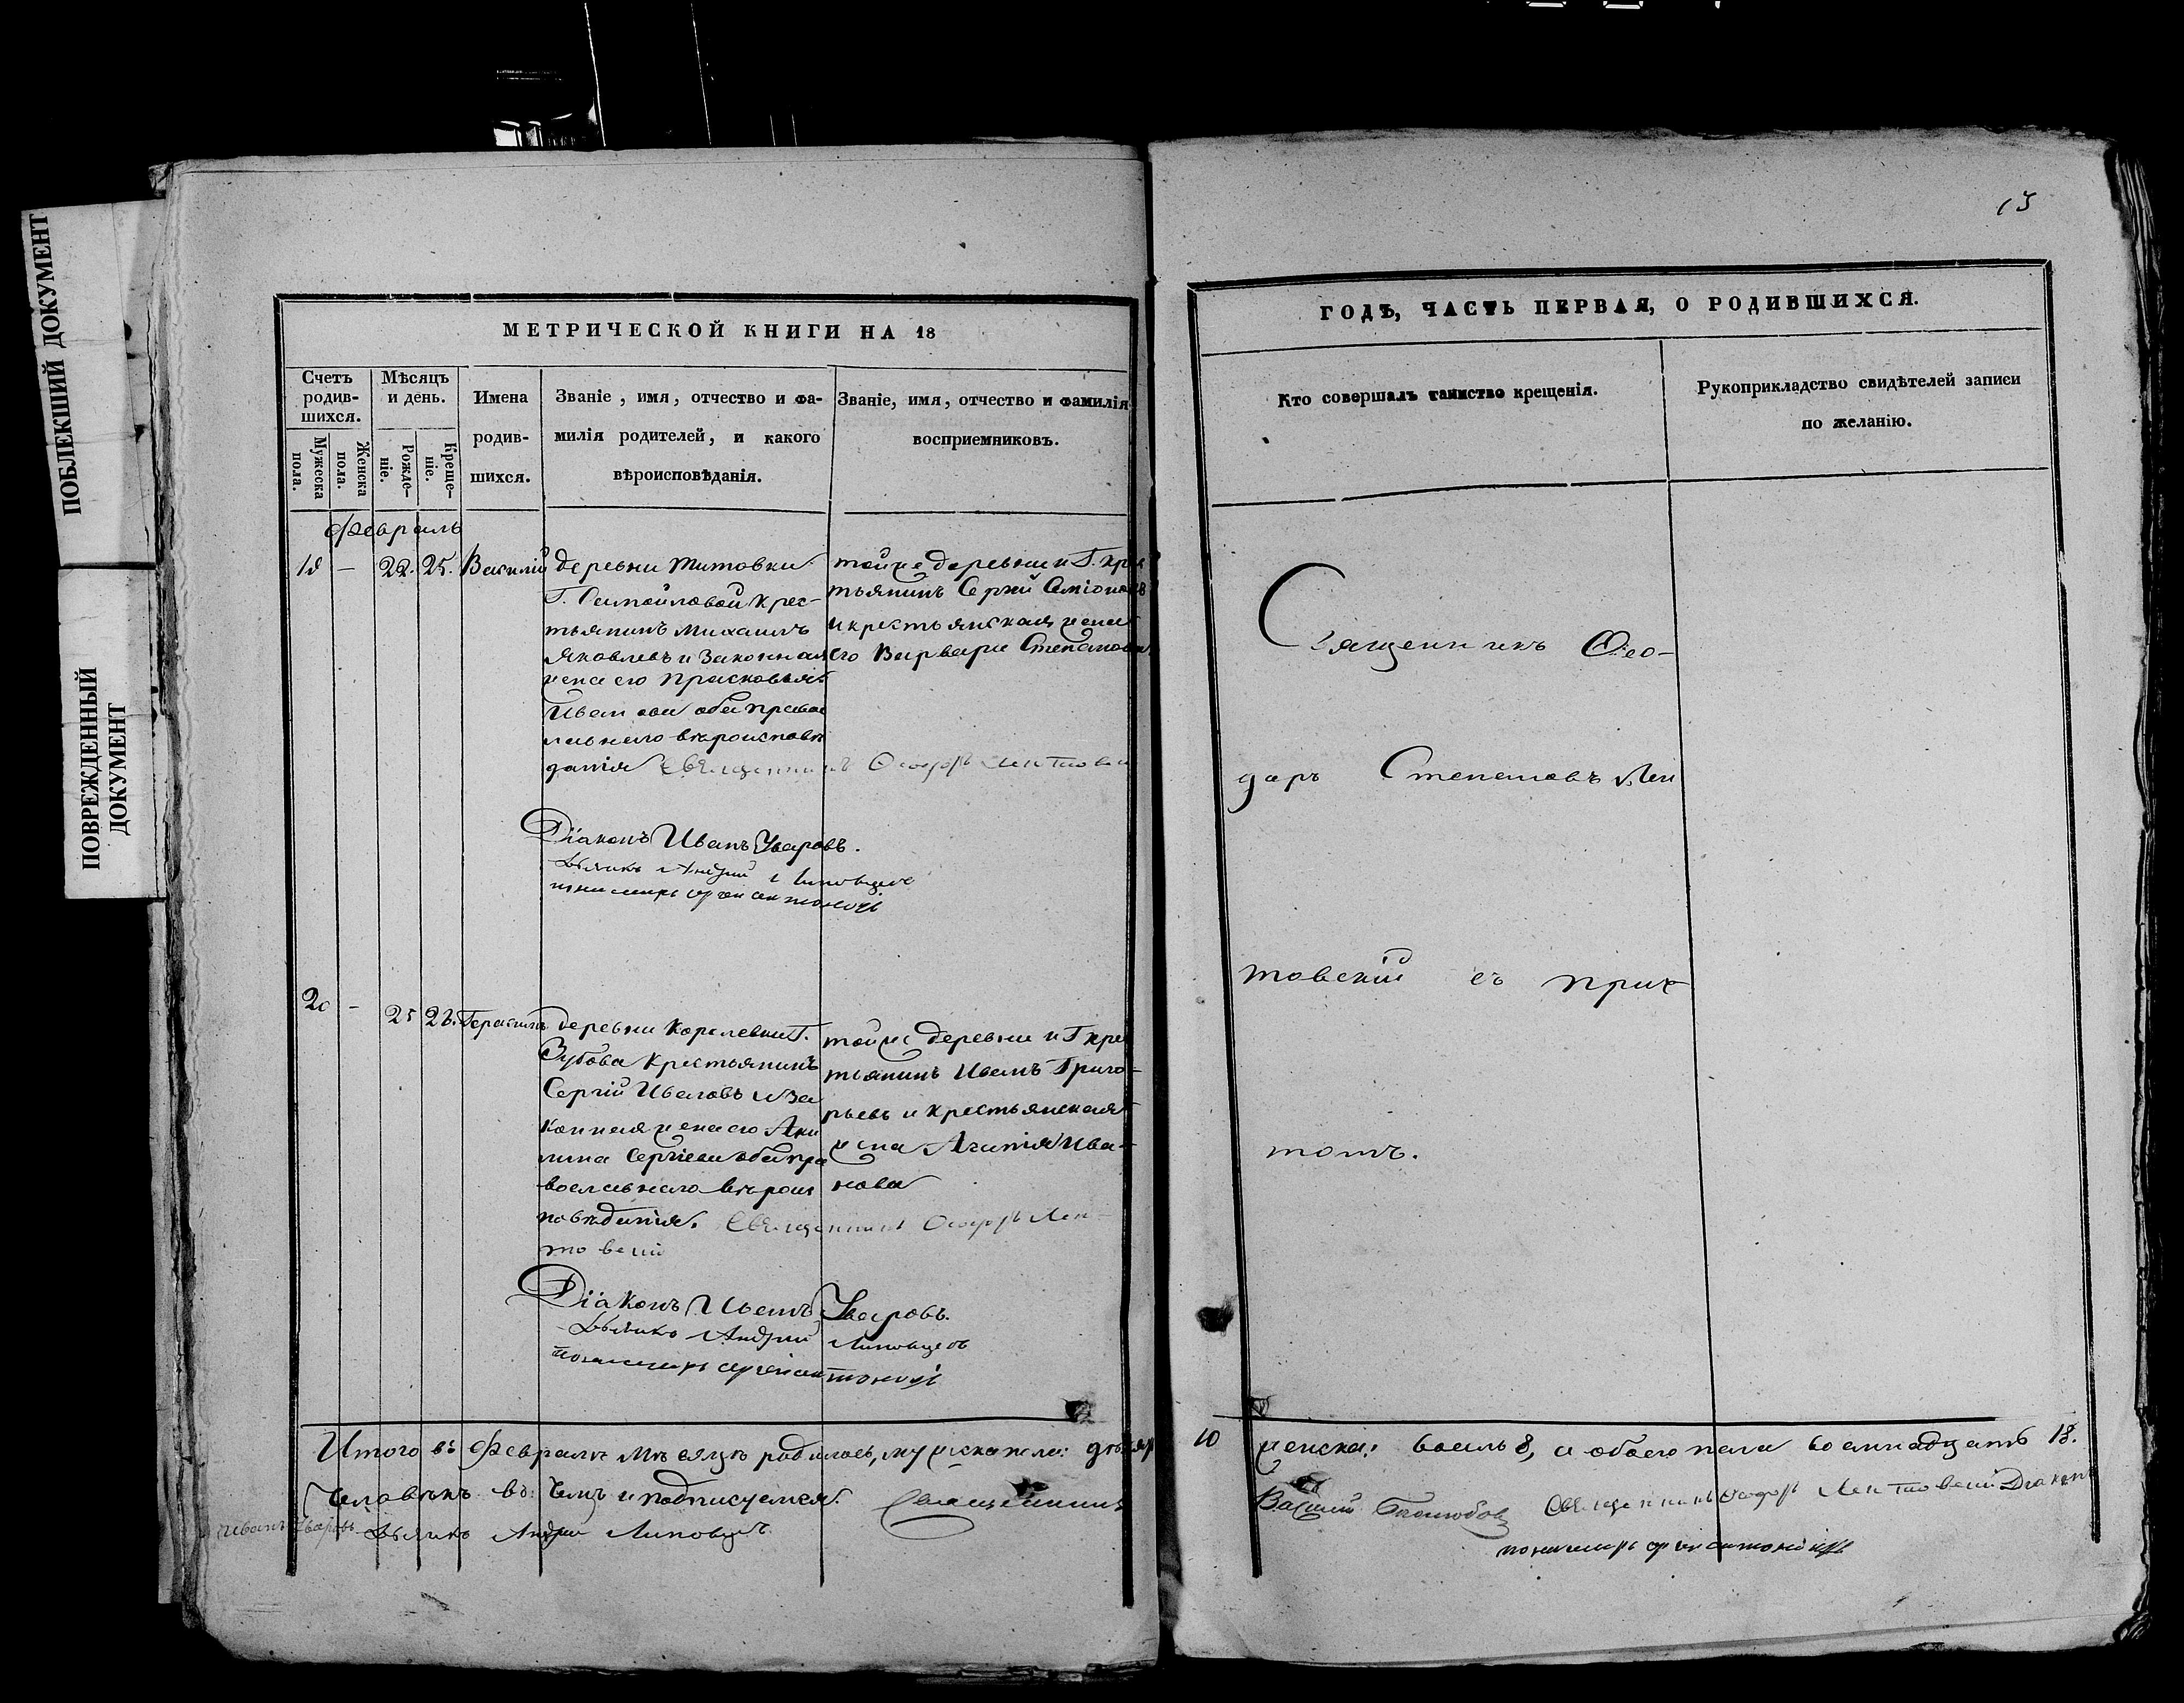 ПОБЛЕКШИЙ ДОКУМЕНТ
ПОВРЕЖДЕННЫЙ
ДОКУМЕНТ
МЕТРИЧЕСКОЙ КНИГИ НА 18
Счетъ
родив-
шихся.
Мужеска
пола.
Женска
пола.
Мѣсяцъ
и день.
Рожде-
ніе.
Креще-
ніе.
Имена
родив-
шихся.
Званіе, имя, отчество и фа-
милія родителей, и какого
вѣроисповѣданія.
Званіе, имя, отчество и фамилія
восприемниковъ.
Февраль
– 22. 25. Василій
деревни Титовки
крес-
тьянинъ Михаилъ
Яковлевъ и законная
жена его Прасковья
Иванова оба право
славнаго вѣроисповѣ
данія Священникъ Ѳеодоръ
тойже деревни и Г. крес
тьянинъ Сергій
и крестьянская жена
его Варвара Степанова
Діаконъ Иванъ Уваровъ.
Дьячикъ Андрій Липовцов
пономарь
– 25 28. Герасимъ
деревни Королевки Г.
Зубова Крестьянинъ
Сергій Ивановъ и за
конная жена его Аку
лина Сергіева оба пра
вославнаго вѣроис
повѣданія. Священникъ Ѳеодоръ Лен-
товскій
тойже деревни и Г кре
тьянинъ Иванъ Григо-
рьевъ и крестьянская
жена Агапія Ива-
нова
Діаконъ Иванъ Уваровъ.
Дьячикъ Андрій Липовцов
пономарь
Итого въ Февралѣ мѣсяцѣ родилось, мужска пола:
человѣкъ въ чемъ и подписуемся. Священникъ
Иванъ Уваровъ Дьячикъ Андрій Липовцов
13
ГОДЪ, ЧАСТЬ ПЕРВАЯ, О РОДИВШИХСЯ.
Кто совершалъ таинство крещенія.
Рукоприкладство свидѣтелей записи
по желанію.
Священникъ Ѳео-
доръ Степановъ Лен
товскій съ прич
томъ.
10 женска: восмь 8, а обоего пола восемнадцать 18.
Василій Священникъ Ѳеодоръ Лентовскій Діаконъ
пономарь